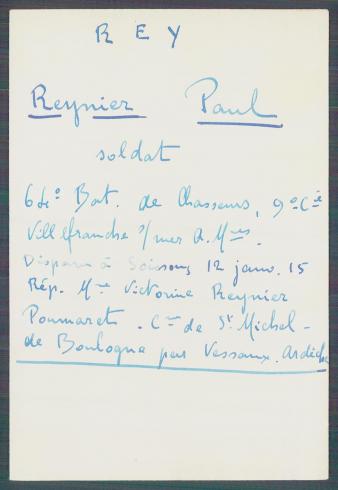 R E Y
Reynier Paul
soldat
64e Bat. de Chasseurs, 9e Cie
Villefranche s/mer A. Mmes.
Disparu à Soissons 12 janv. 15
Rép. Mme Victorine Reynier
Poumaret. Cne de St Michel-
de Boulogne par Vessaux. Ardèche